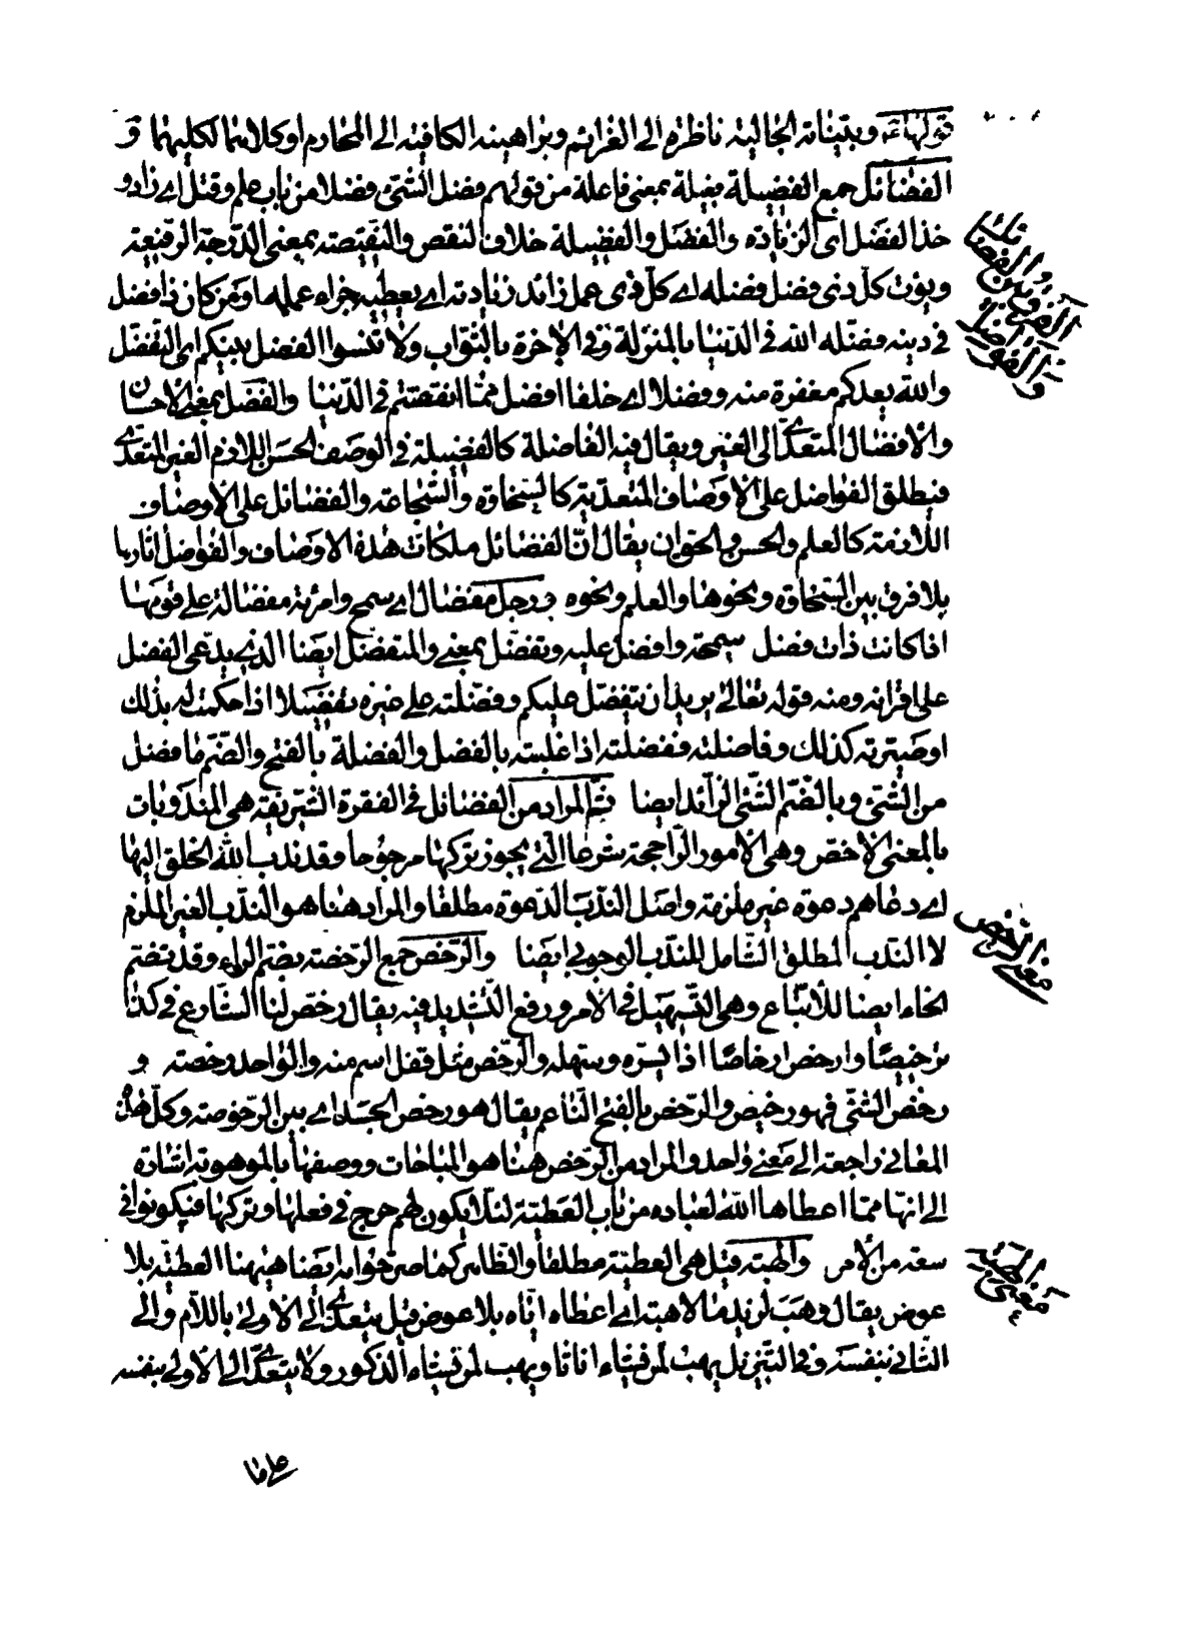 قولها ع وبيّناته الجالية ناظرة الى العزائم وبراهينه الكافية الى المحارم او كلاهما لكليهما و
الفضائل جمع الفضيلة فعيلة بمعنى فاعلة من قولهم فضل الشئ فضلا من باب علم وقتل اى زاد و
خذ الفضل اى الزيادة والفضل والفضيلة خلاف النقص والنقيصة بمعنى الدرجة الرفيعة
ويؤت كل ذى فضل فضله اى كل ذى عمل زائد زيادته اى يعطيه جزاء عمله او من كان ذا فضل
فى دينه فضّله الله فى الدنيا بالمنزلة وفى الاخرة بالثواب ولا تنسوا الفضل بينكم اى التفضل
والله يعدكم مغفرة منه وفضلا اى خلفا افضل ممّا انفقتم فى الدنيا والفضل بمعنى الاحسان
والافضال المتعدّى الى الغير ويقال فيه الفاضلة كالفضيلة فى الوصف الحسن اللازم الغير المتعدّى
فيطلق الفواضل على الاوصاف المتعدية كالسخاوة والشجاعة والفضائل على الاوصاف
اللازمة كالعلم والحسن والحق ان يقال انّ الفضائل ملكات هذه الاوصاف والفواضل اثارها
بلا فرق بين السخاوة ونحوها والعلم ونحوه ورجل مفضال اى سمح وامرئة مفضالة على قومها
اذا كانت ذات فضل سمحة وافضل عليه وتفضّل بمعنى والمتفضّل ايضا الذى يدعى الفضل
على اقرانه ومنه قوله تعالى يريد ان يتفضّل عليكم وفضّلته على غيره تفضيلا اذا حكمت له بذلك
او صيرته كذلك وفاضلته ففضلته اذا غلبته بالفضل والفضلة بالفتح والضمّ ما فضل
من الشئ وبالضمّ الشئ الزائد ايضا ثمّ المراد من الفضائل فى الفقرة الشريفة هى المندوبات
بالمعنى الاخص وهى الامور الراجحة شرعا التى يجوز تركها مرجوحا وقد ندب الله الخلق اليها
اى دعاهم دعوة غير ملزمة واصل الندب الدعوة مطلقا والمراد هنا هو الندب الغير الملزم
لا الندب المطلق الشامل للندب الوجوبى ايضا والرّخص جمع الرخصة بضم الراء وقد تضم
الخاء ايضا للاتباع وهى التسهيل فى الامر ورفع التشديد فيه يقال رخّص لنا الشارع فى كذا
ترخيصًا وارخص ارخاصًا اذا يسّره وسهله والرخص مثل قفل اسم منه والواحد رخصة و
رخص الشئ فهو رخيص والرخص بالفتح الناعم يقال هو رخص الجسد اى بين الرخوصة وكلّ هذه
المعانى راجعة الى معنى واحد والمراد من الرخص هنا هو المباحات ووصفها بالموهوبة اشارة
الى انها ممّا اعطاها الله لعباده من باب العطية لئلا يكون لهم حرج فى فعلها وتركها فيكونوا فى
سعة من الامر والهبة قيل هى العطية مطلقا والظاهر كما صرّحوا به ايضا هيهنا العطية بلا
عوض يقال وهب لزيد مالا هبة اى اعطاه ايّاه بلا عوض قيل يتعدّى الى الاولى باللام والى
الثانى بنفسه وفى التنزيل يهب لمن يشاء اناثا ويهب لمن يشاء الذكور ولا يتعدّى الى الاولى بنفسه
على ما
الفرق بين الفضائل
والفواضل
معنى الرخص
معنى الهبة